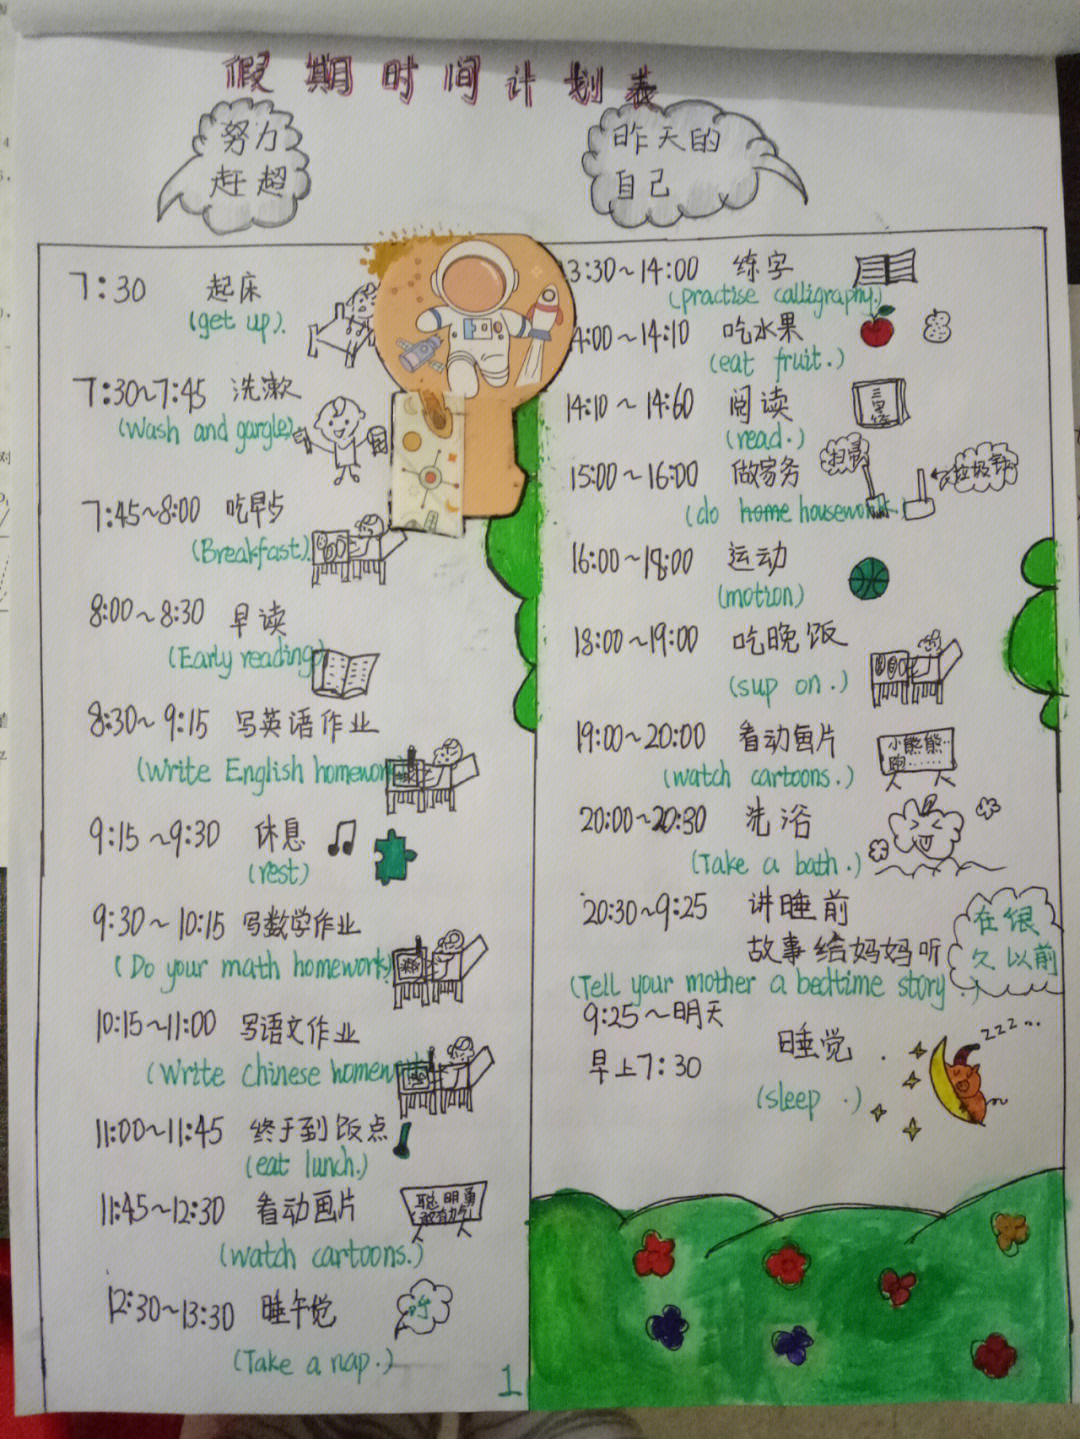 假期时间计划表
努力
赶超
昨天的
自己
7:30 起床
(get up).
7:30~7:45 洗漱
(Wash and gargle)
7:45~8:00 吃早点
(Breakfast)
8:00~8:30 早读
(Early reading)
8:30~9:15 写英语作业
(Write English homework
9:15~9:30 休息
(rest)
9:30~10:15 写数学作业
(Do your math homework)
10:15~11:00 写语文作业
(Write Chinese homework
11:00~11:45 终于到饭点
(eat lunch.)
11:45~12:30 看动画片
聪明勇
敢有力气
(watch cartoons.)
12:30~13:30 睡午觉
(Take a nap.)
1
3:30~14:00 练字
(practise calligraphy.)
4:00~14:10 吃水果
(eat fruit.)
14:10~14:60 阅读
三字经
(read.)
15:00~16:00 做家务
扫帚
(do home housework.)
16:00~18:00 运动
(motion)
18:00~19:00 吃晚饭
(sup on.)
19:00~20:00 看动画片
小熊熊..
跑......
(watch cartoons.)
20:00~20:30 洗浴
(Take a bath.)
20:30~9:25 讲睡前
故事给妈妈听
在很
久以前
(Tell your mother a bedtime story.)
9:25~明天
早上7:30
睡觉.
zzz...
(sleep.)